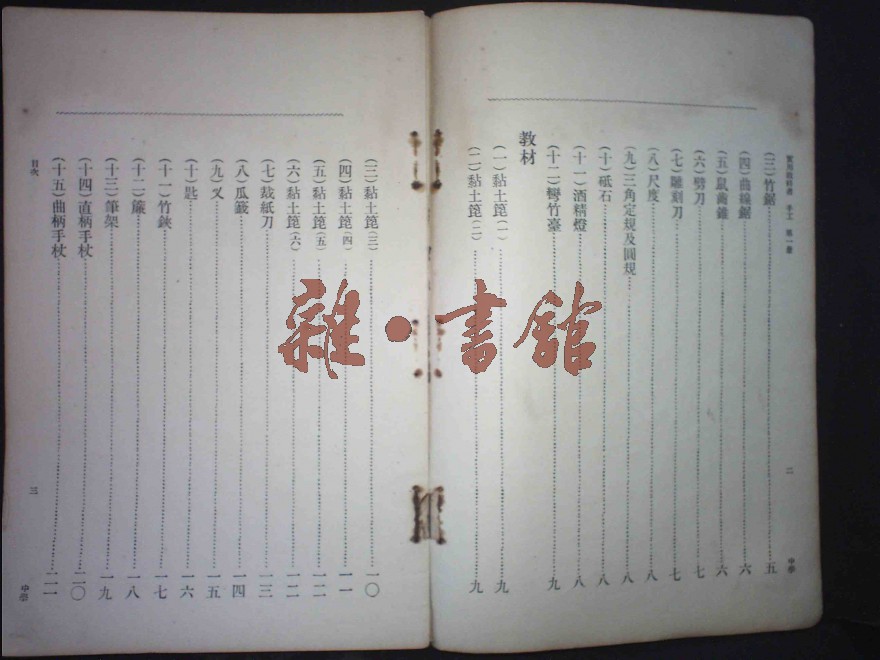 實用教科書 手工 第一册
二
中學
(三)竹鋸 五
(四)曲線鋸 六
(五)鼠齒錐 六
(六)劈刀 七
(七)雕刻刀 七
(八)尺度 八
(九)三角定規及圓規 八
(十)砥石 八
(十一)酒精燈 八
(十二)彎竹臺 九
教材
(一)黏土箆(一) 九
(二)黏土箆(二) 九
(三)黏土箆(三) 一〇
(四)黏土箆(四) 一一
(五)黏土箆(五) 一二
(六)黏土箆(六) 一二
(七)裁紙刀 一三
(八)瓜籤 一四
(九)叉 一五
(十)匙 一六
(十一)竹鋏 一七
(十二)簾 一八
(十三)筆架 一九
(十四)直柄手杖 二〇
(十五)曲柄手杖 二一
目次
三
中學
雜·書館